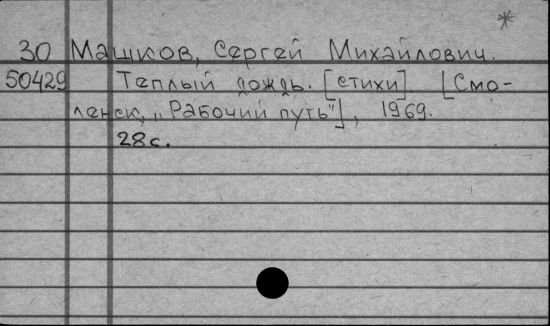 *
30 Машков, Сергей Михайлович.
50429 Теплый дождь. [стихи] [Смо-
ленск, „Рабочий путь"], 1969.
28с.